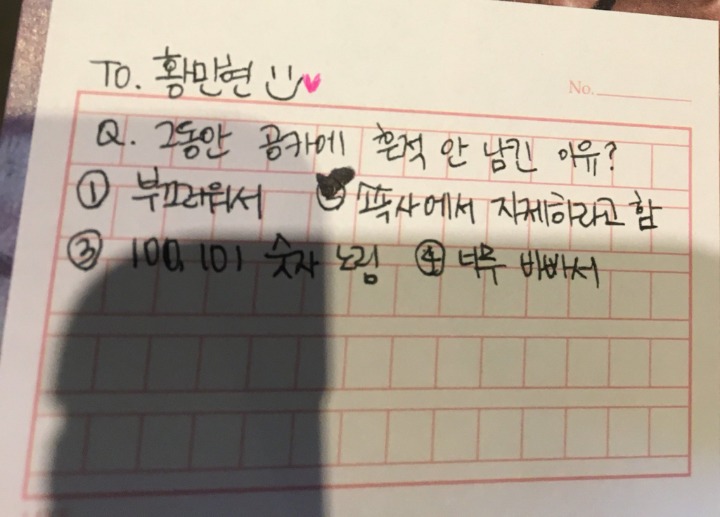 TO. 황민현
No.
Q. 그동안 공카에 흔적 안 남긴 이유?
① 부끄러워서 ② 소속사에서 자제하라고 함
③ 100, 101 숫자 노림 ④ 너무 바빠서